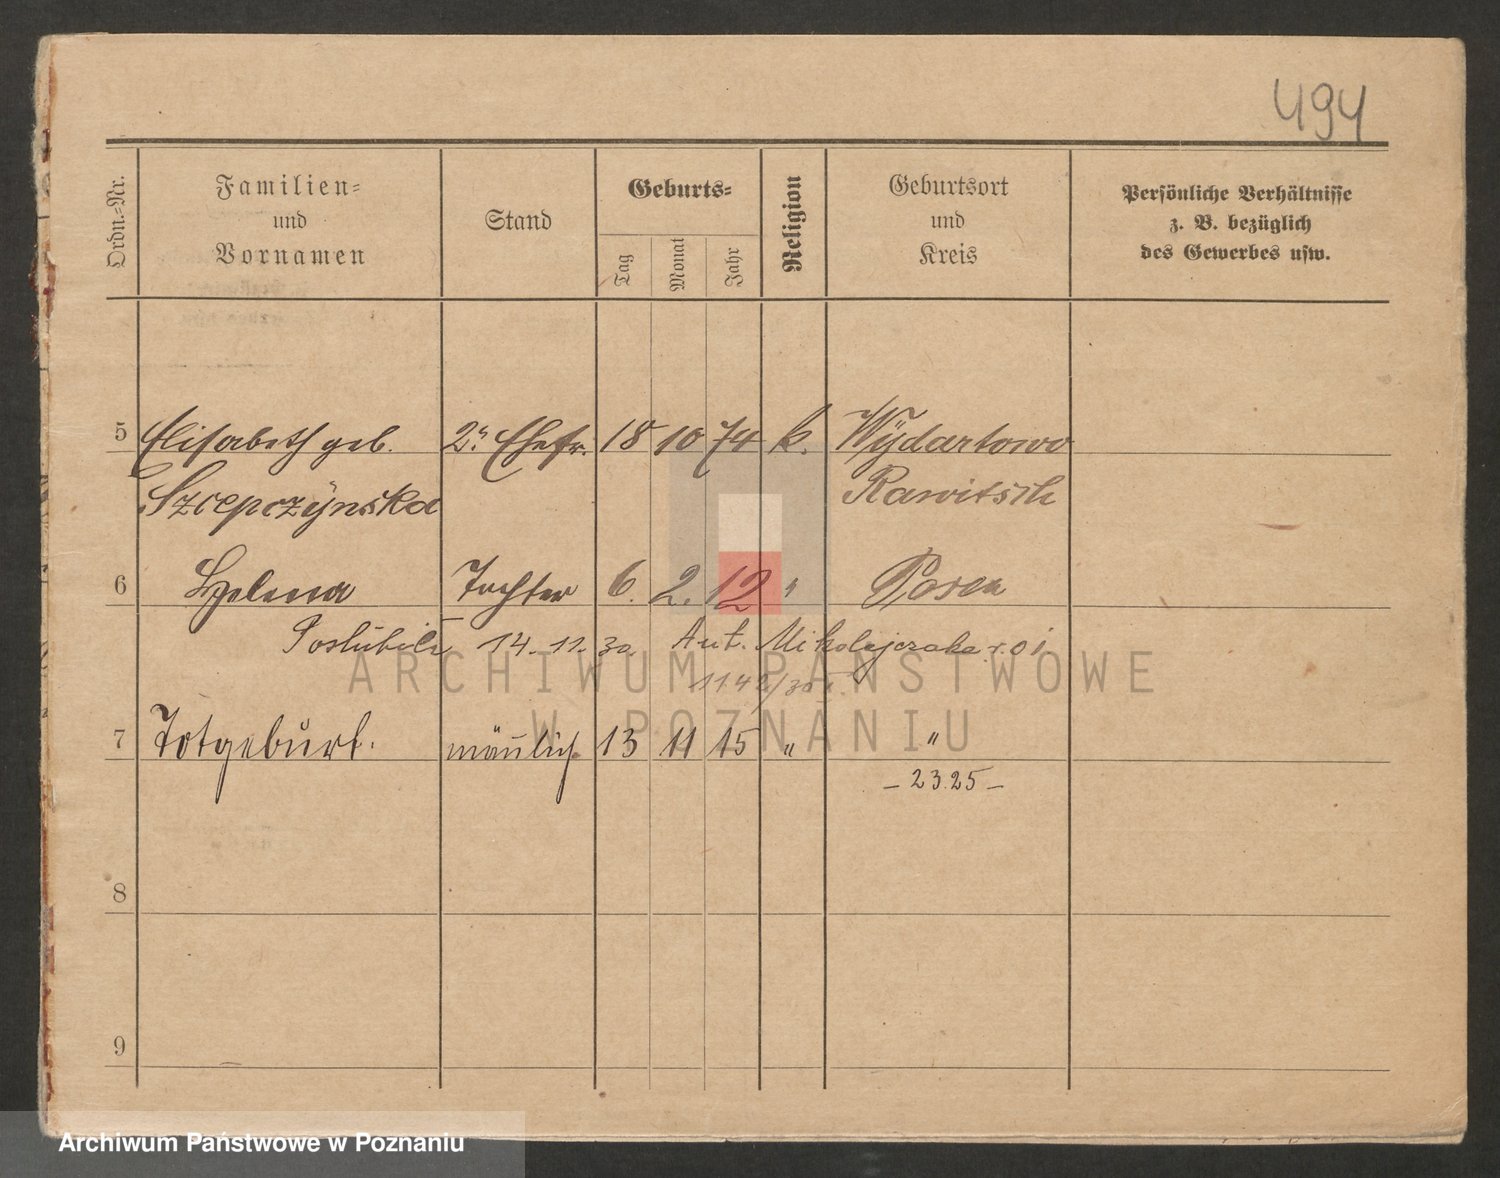 494
Ordn.=Nr.
Familien=
und
Vornamen
Stand
Geburts=
Tag
Monat
Jahr
Religion
Geburtsort
und
Kreis
Persönliche Verhältnisse
z. B. bezüglich
des Gewerbes usw.
5 Elisabeth geb. 2. Ehefr. 18 10 74 k. Wÿdartowo
Szczepczÿnska Rawitsch
6 Helena Tochter 6. 2. 12 " Posen
Poslubiła 14. 11. 30. Ant. Mikolajczaka
1142/30
7 Totgeburt. mänlich 13 11 15 " "
- 23.25 -
8
9
ARCHIWUM PAŃSTWOWE
W POZNANIU
Archiwum Państwowe w Poznaniu